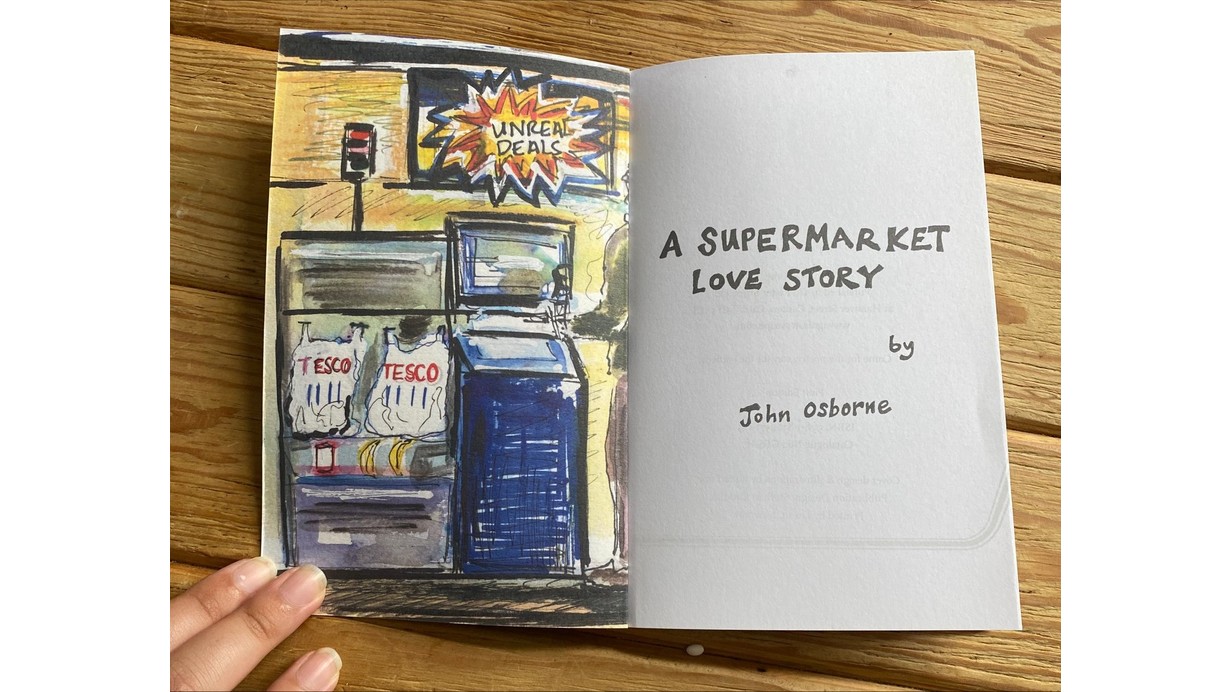 UNREAL
DEALS
TESCO
TESCO
A SUPERMARKET
LOVE STORY
by
John Osborne